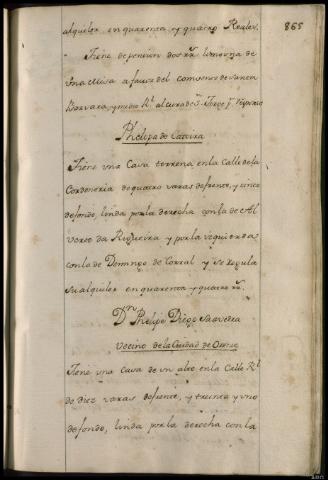 865
alquiler en quarenta y quatro Reales.
Tiene de pension dos rr.s limosna de
una Missa a favor del convento de Santa
Barvara, y medio R.l al cura de S.n Jorge
Phelipa de Caveira
Tiene una Casa terrena en la Calle de la
Cordoneria de quatro varas de frente, y cinco
de fondo, linda por la derecha con la de Al
varez da Rigueira y por la izquierda
con la de Domingo de Corral y se regula
su alquiler en quarenta y quatro rr.s
D.n Phelipe Diego Saavedra
Vecino de la Ciudad de Orense
Tiene una casa de un alto en la Calle R.l
de diez varas de frente, y treinta y uno
de fondo, linda por la derecha con la